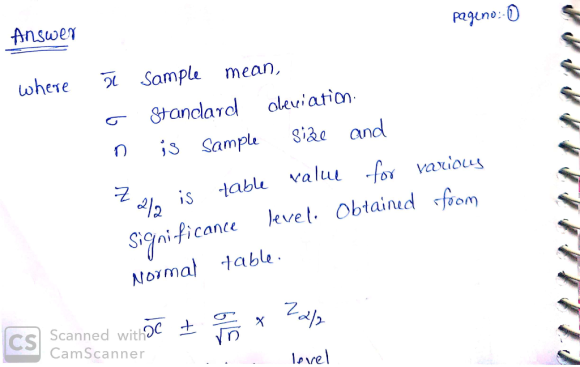 pageno:- ①
Answer
where x̄ sample mean,
σ standard deviation.
n is sample size and
Z α/2 is table value for various
significance level. Obtained from
Normal table.
x̄ ± σ/√n × Z α/2
level
CS Scanned with
CamScanner